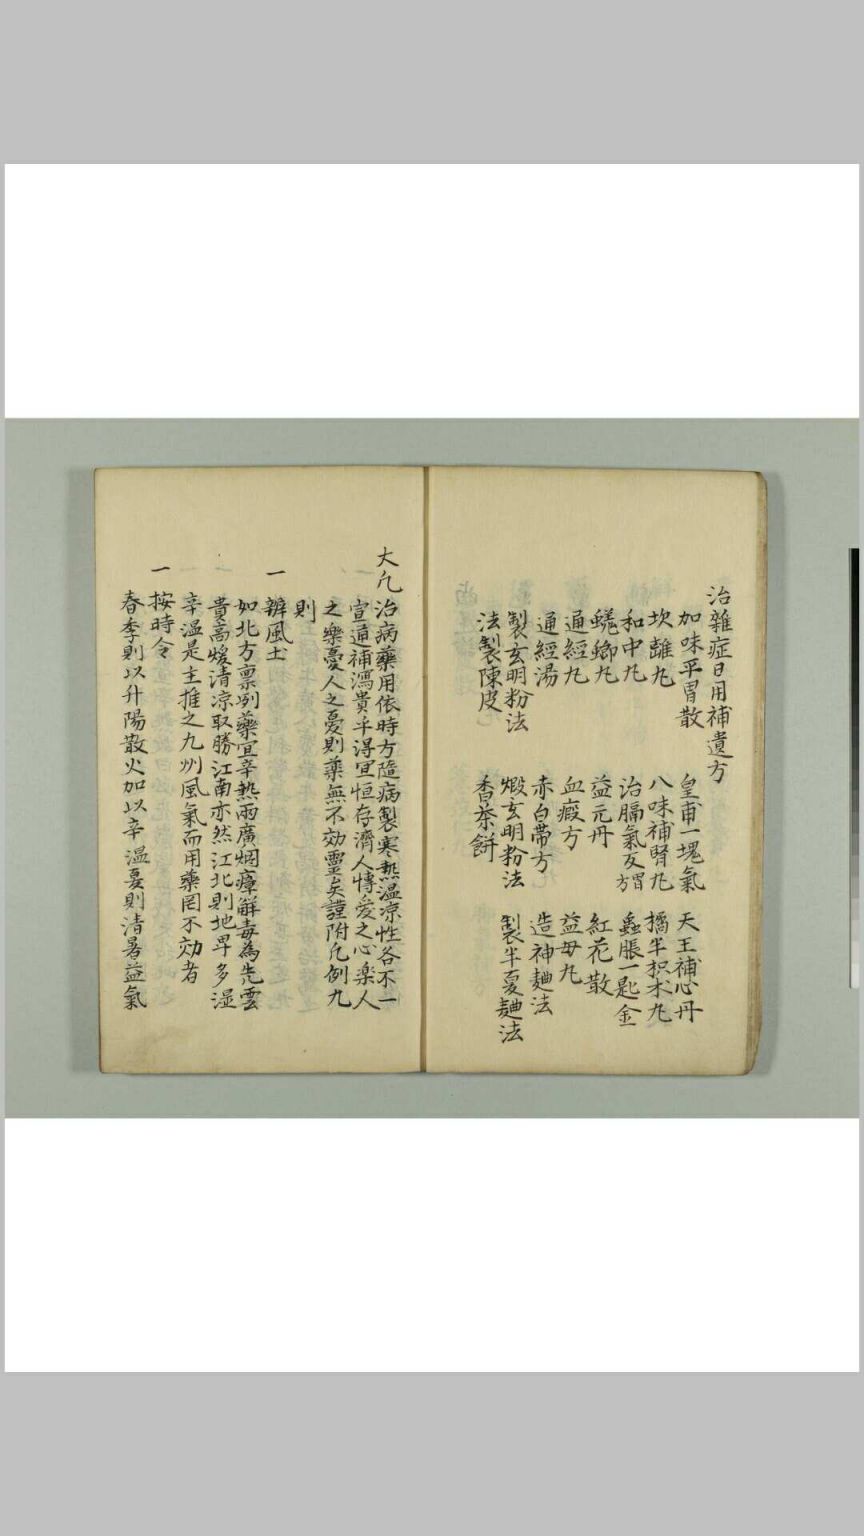 治雜症日用補遺方
加味平胃散 皇甫一塊氣 天王補心丹
坎離丸 八味補腎丸 橘半枳朮丸
和中丸 治膈氣反胃方 蟲脹一匙金
蜣螂丸 益元丹 紅花散
通經丸 血瘕方 益母丸
通經湯 赤白帶方 造神麯法
製玄明粉法 煅玄明粉法 製半夏麯法
法製陳皮 香茶餅
大凡治病藥用依時方隨病製寒熱温涼性各不一
宣通補瀉貴乎得宜恒存濟人慱愛之心楽人
之樂憂人之憂則藥無不効靈矣謹附凡例九
則
一 辨風土
如北方禀冽藥宜辛熱兩廣烟瘴解毒為先雲
貴高燥清凉取勝江南亦然江北則地卑多湿
辛温是主推之九州風氣而用藥罔不効者
一 按時令
春季則以升陽散火加以辛温夏則清暑益氣